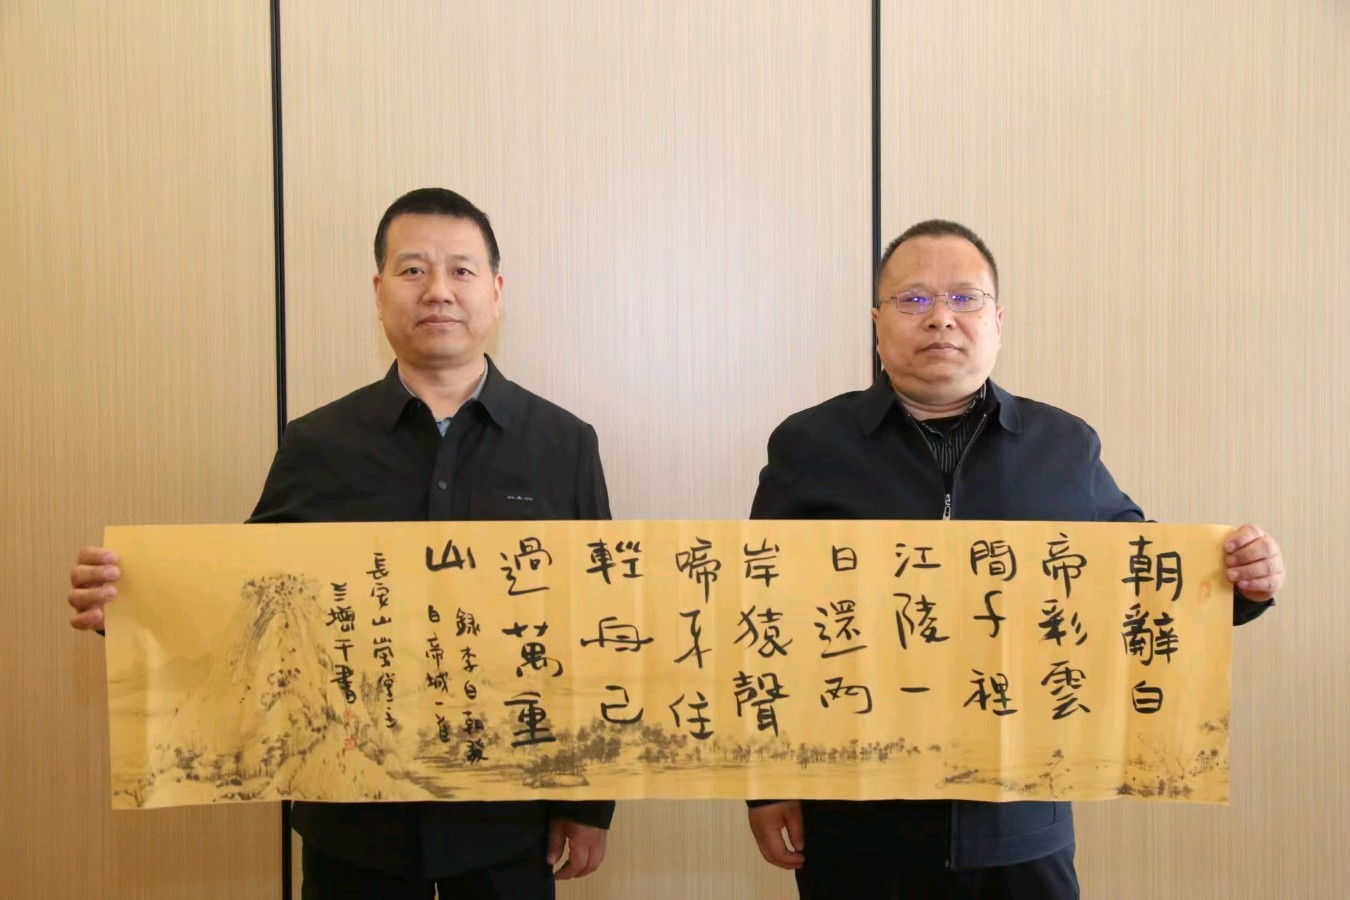 朝辭白
帝彩雲
間千裡
江陵一
日還兩
岸猿聲
啼不住
輕舟已
過萬重
山
錄李白朝發
白帝城一首
長安山
書